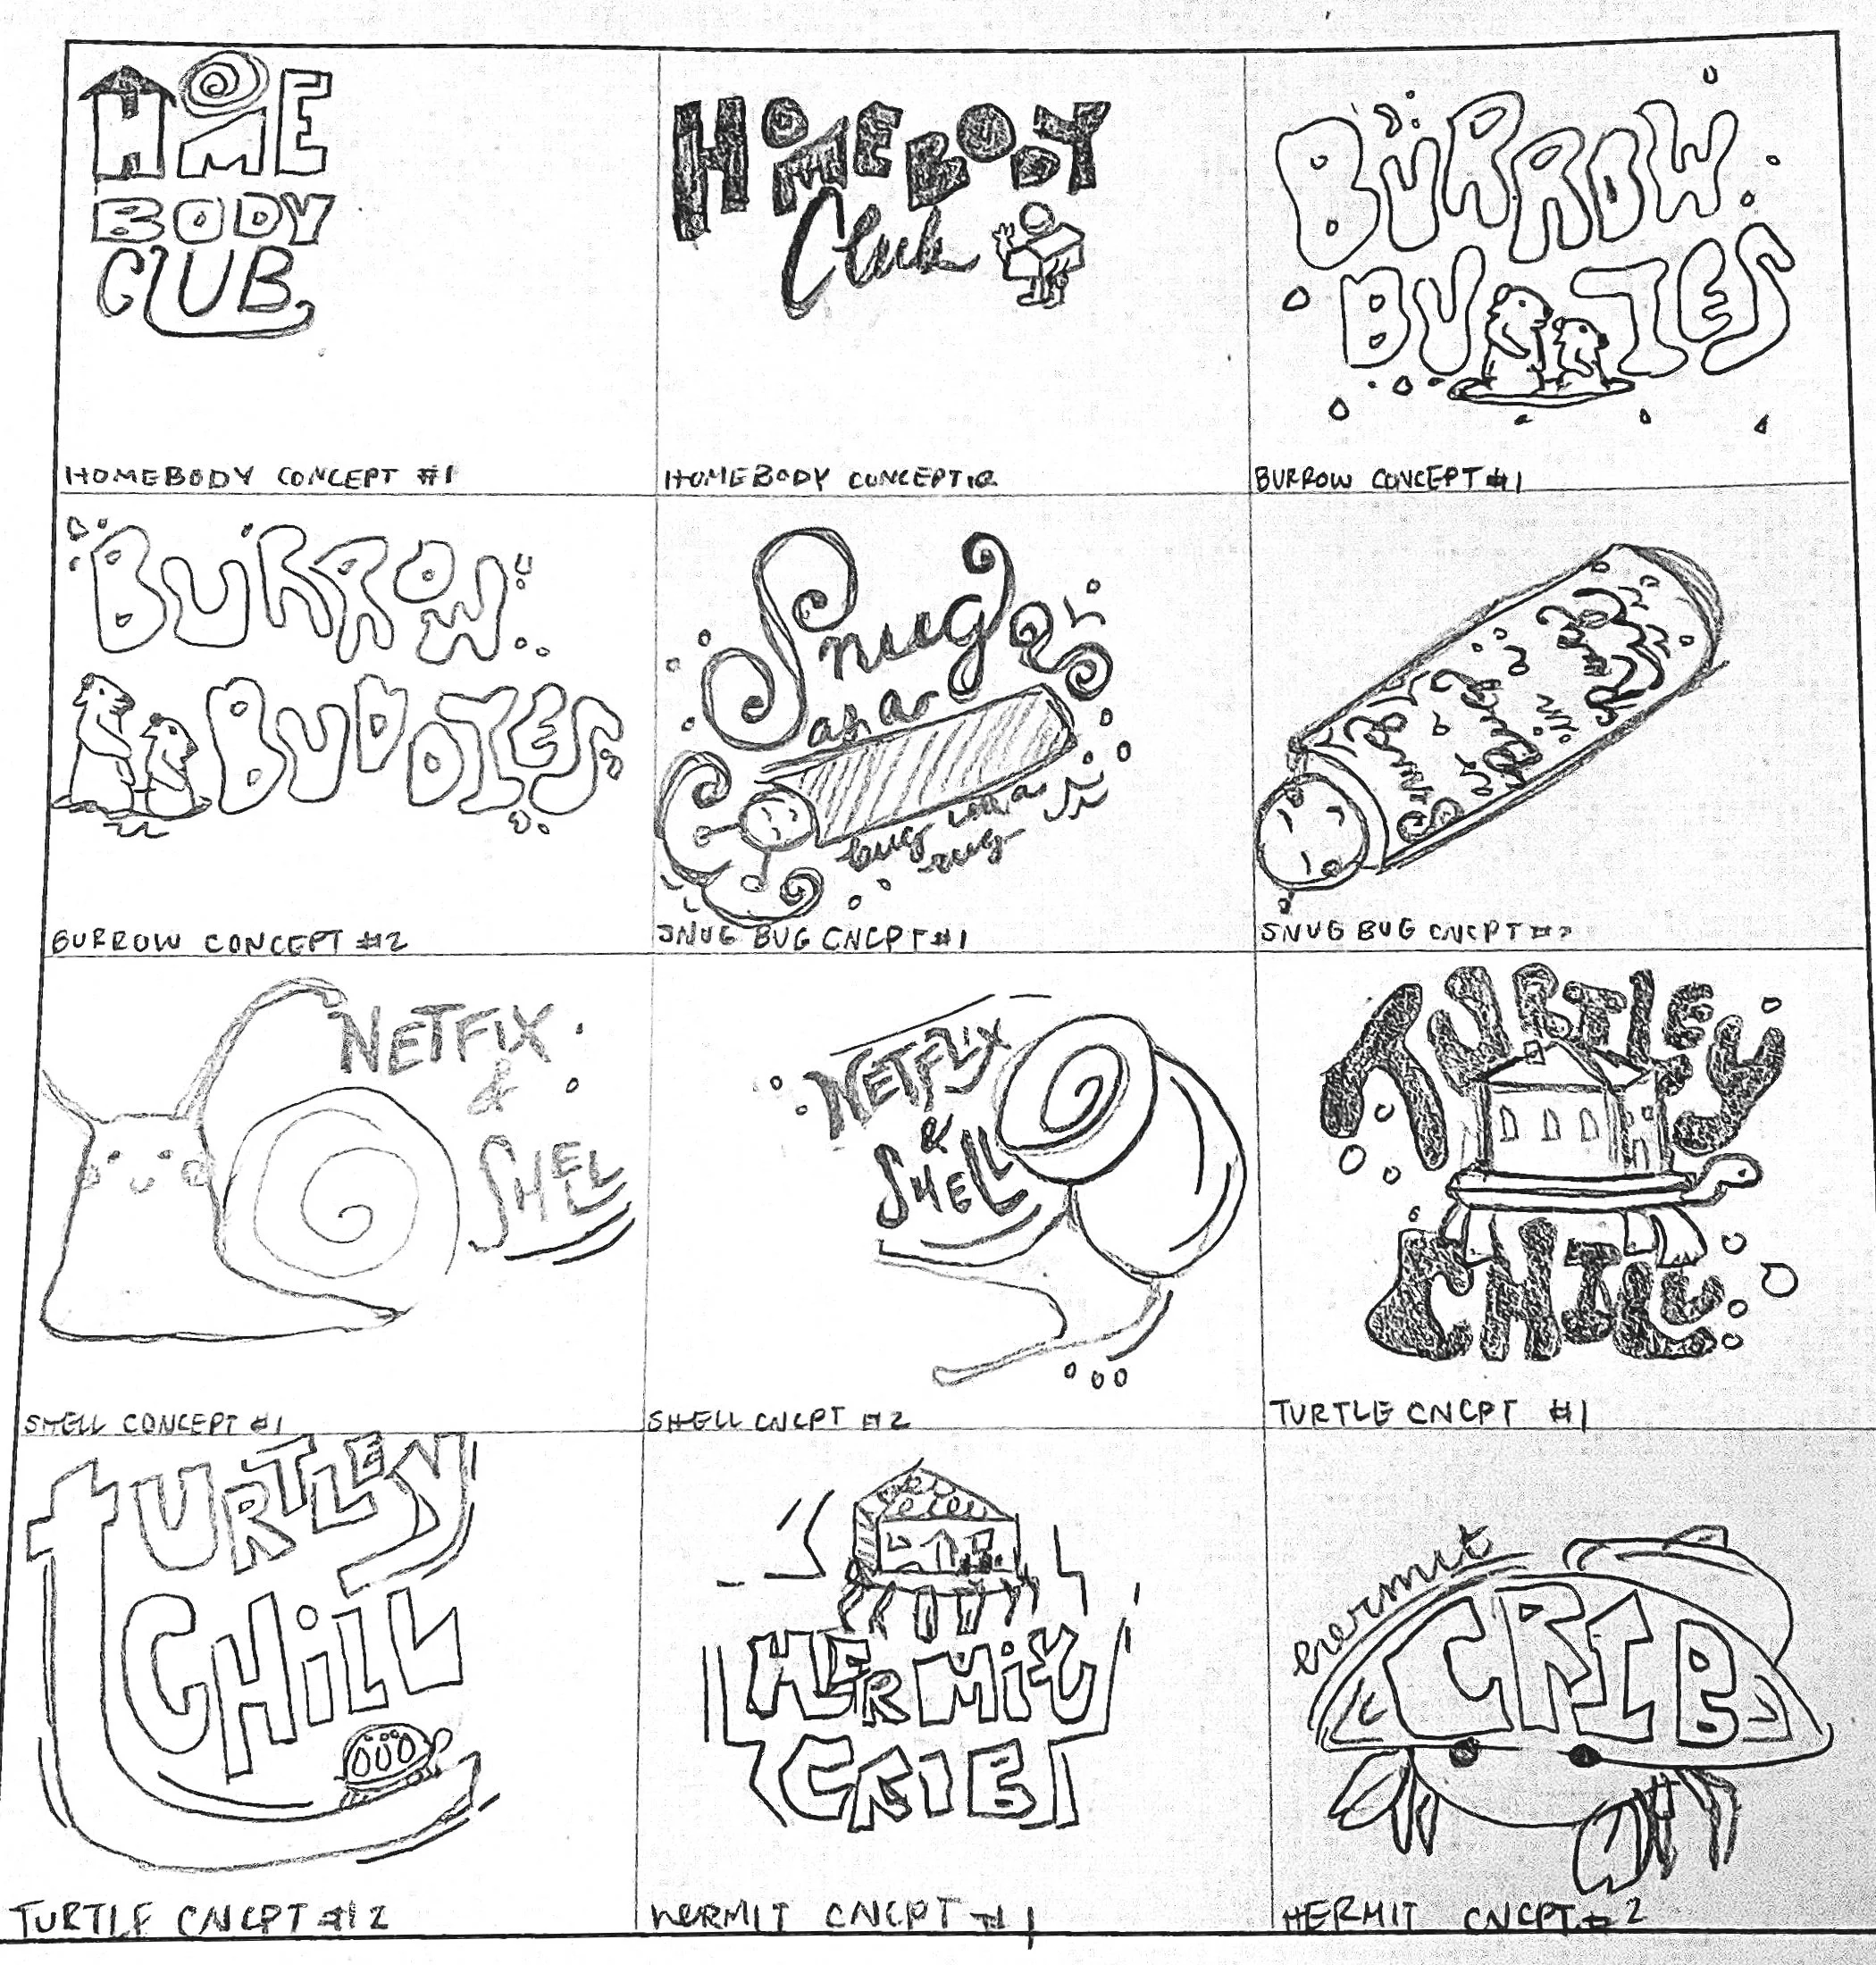 HOME
BODY
CLUB
HOMEBODY CONCEPT #1
HOMEBODY
Club
HOMEBODY CONCEPT #2
BURROW
BUDDIES
BURROW CONCEPT #1
BURROW
BUDDIES
BURROW CONCEPT #2
Snug
as a
bug in a
rug
SNUG BUG CNCPT #1
SNUG BUG CNCPT #2
NETFIX
&
SHELL
SHELL CONCEPT #1
NETFLIX
&
SHELL
SHELL CNCPT #2
TURTLEY
CHILL
TURTLE CNCPT #1
TURTLEY
CHiLL
TURTLE CNCPT #2
HERMiT
CRIB
HERMIT CNCPT #1
hermit
CRIB
HERMIT CNCPT #2